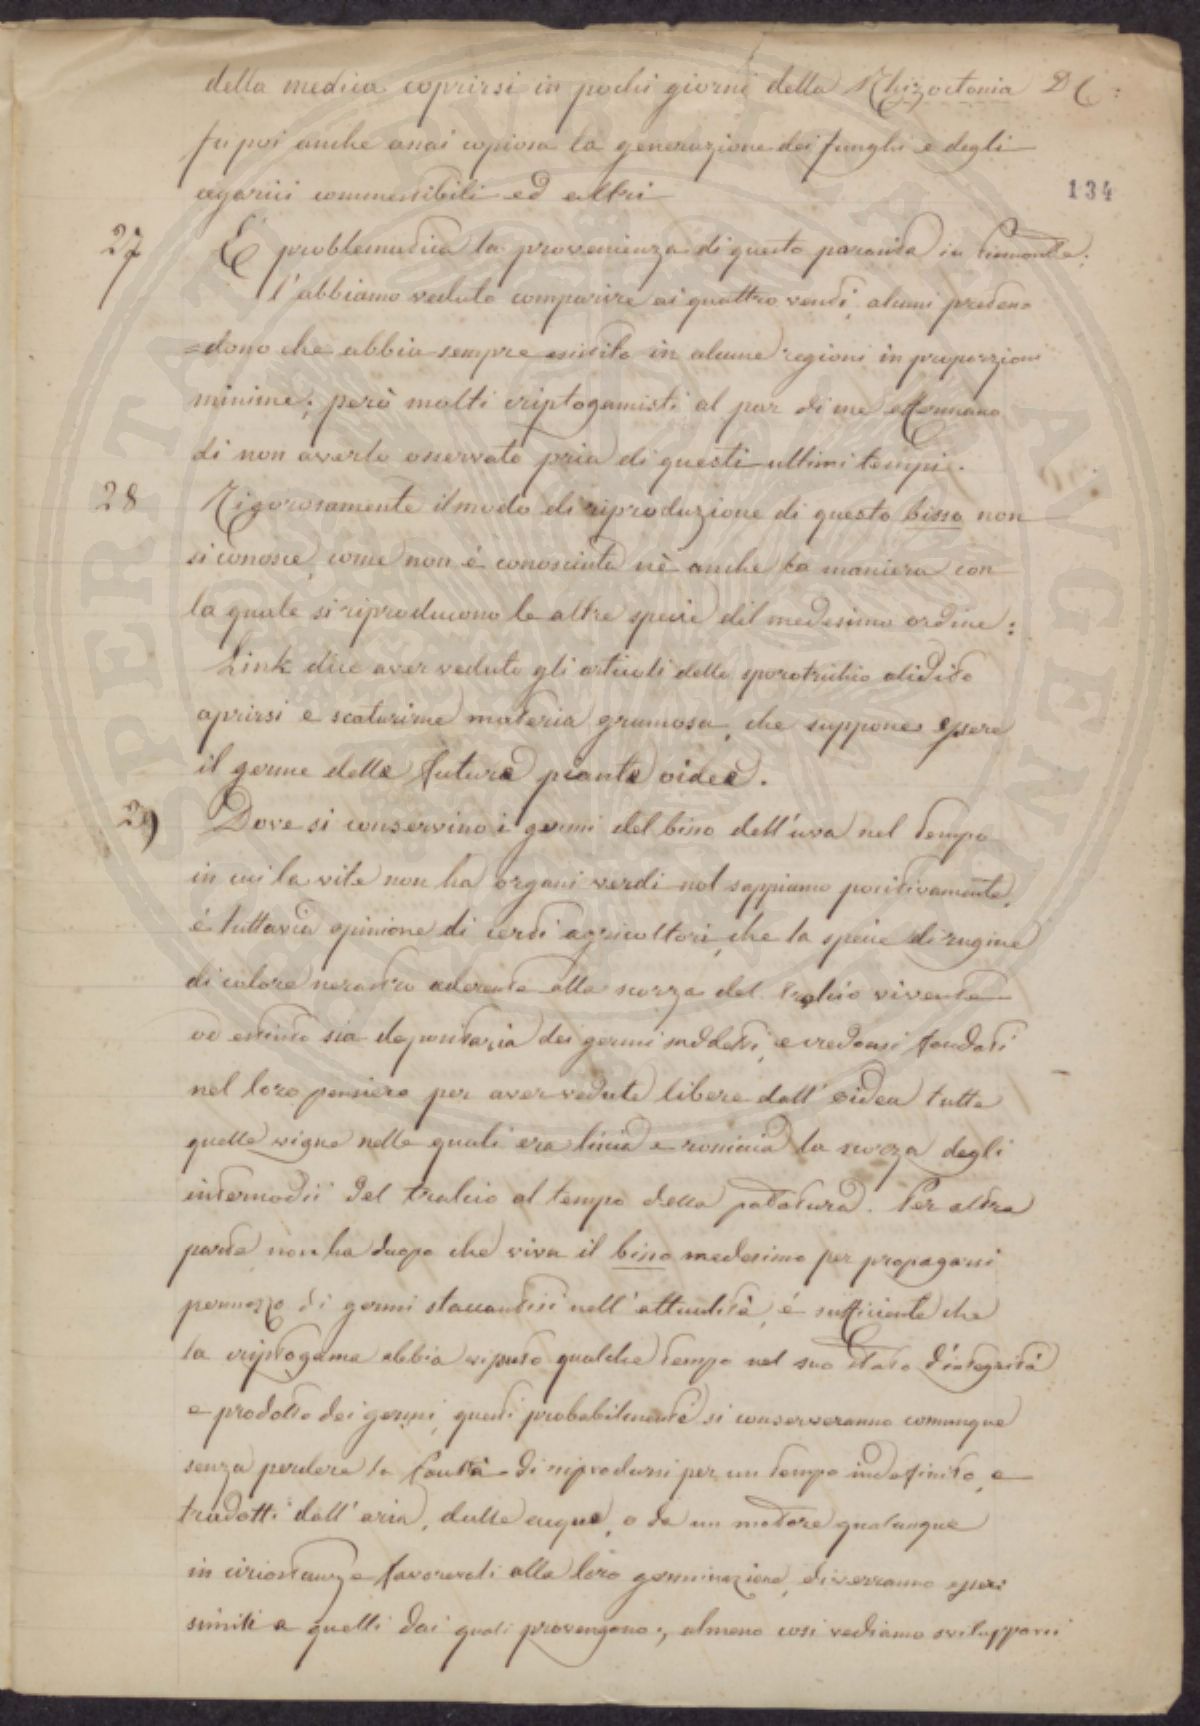 della medica coprirsi in pochi giorni della Rhizoctonia DC:
fu poi anche assai copiosa la generazione dei funghi e degli
agarici commestibili ed altri
134
27 È problematica la provenienza di questo parasita in Piemonte.
l'abbiamo veduto comparire ai quattro venti, alcuni preten=
=dono che abbia sempre esistito in alcune regioni in proporzioni
minime; però molti criptogamisti al par di me affermano
di non averlo osservato pria di questi ultimi tempi.
28 Rigorosamente il modo di riproduzione di questo bisso non
si conosce, come non é conosciuta nè anche la maniera con
la quale si riproducono le altre specie dil medesimo ordine:
Link dice aver veduto gli articoli dello sporotrichio
aprirsi e scaturirne materia grumosa, che suppone essere
il germe delle future piante oidee.
29 Dove si conservino i germi del bisso dell'uva nel tempo
in cui la vite non ha organi verdi nol sappiamo positivamente,
é tuttavia opinione di certi agricoltori, che la specie di rugine
di colore nerastro aderente alla scorza del tralcio vivente
od estinto sia depositaria dei germi suddetti, e credonsi fondati
nel loro pensiero per aver veduto libere dall'oidea tutte
quelle vigne nelle quali era liscia e rossiccia la scorza degli
internodii del tralcio al tempo della potatura. Per altra
parte non ha duopo che viva il bisso medesimo per propagarsi
permezzo di germi staccantisi nell'attualità, é sufficiente che
la criptogama abbia vissuto qualche tempo nel suo stato d'integrità
e prodotto dei germi, questi probabilmente si conserveranno comunque
senza perdere la facoltà di riprodursi per un tempo indefinito, e
tradotti dall'aria, dalle acque, o da un motore qualunque
in circostanze favorevoli alla loro germinazione, diverranno esseri
simili a quelli dai quali provengono; almeno così vediamo svilupparsi
SPERTATI PUBLICAE AVGENDAE